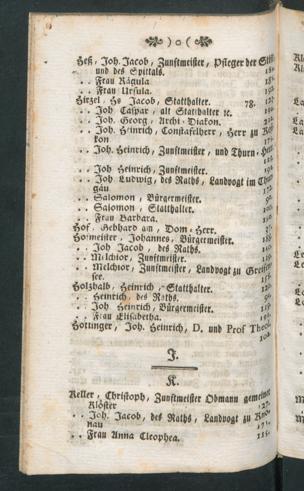 ) o (
Heß, Joh. Jacob, Zunftmeister, Pfleger der Stift
und des Spittals.
. . Frau Ragula.
. . Frau Ursula.
Hirzel, Hs Jacob, Statthalter. 78.
. . Joh Caspar, alt Statthalter ic.
. . Joh. Georg, Archi-Diakon.
. . Joh. Heinrich, Constafelherr, Herr zu
kon
. . Joh. Heinrich, Zunftmeister, und Thurn-Herr.
. . Joh Heinrich, Zunftmeister.
. . Joh Ludwig, des Raths, Landvogt im Thur
gäu
. . Salomon, Bürgermeister.
. . Salomon, Statthalter.
. . Frau Barbara.
Hof, Gebhard am, Dom-Herr.
Hofmeister, Johannes, Bürgermeister.
. . Joh Jacob, des Raths.
. . Melchior, Zunftmeister.
. . Melchior, Zunftmeister, Landvogt zu Greiffen
see.
Holzhalb, Heinrich, Statthalter.
. . Heinrich, des Raths.
. . Joh Heinrich, Bürgermeister.
. . Frau Elisabetha.
Hottinger, Joh. Heinrich, D. und Prof Theol.
J.
K.
Keller, Christoph, Zunftmeister Obmann gemeiner
Klöster
. . Joh. Jacob, des Raths, Landvogt zu
nau
. . Frau Anna Cleophea.